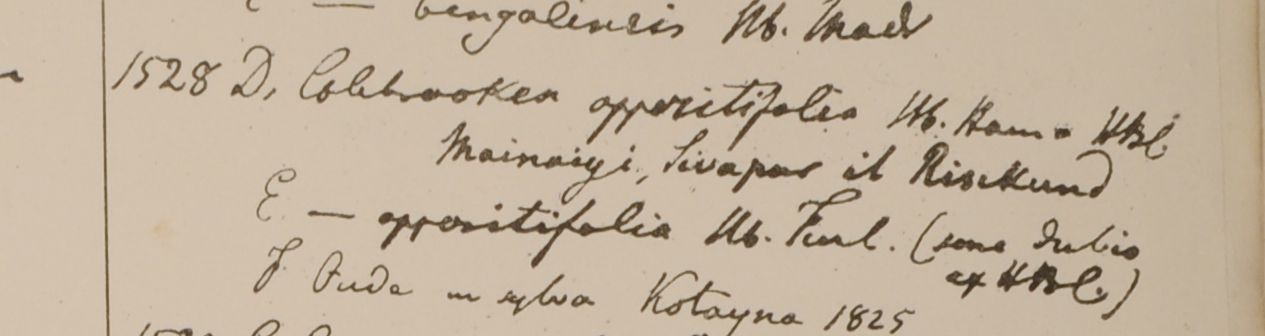 C — bengalensis Hb. Madr
1528 D, Colebrookea oppositifolia Hb. Ham. HBC.
Mainaigi, Sivapur it Risikund
E — oppositifolia Hb. Finl. (sine dubio
ex HBC.)
F Oude in sylva Kotayna 1825